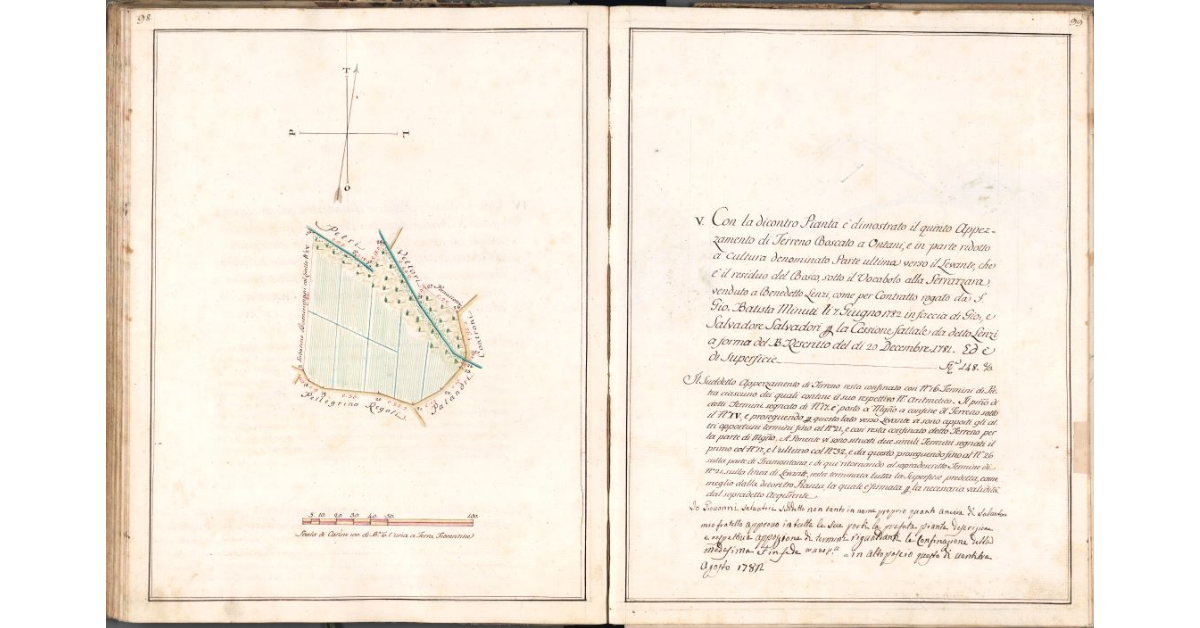 98.
99
T
P
L
O
Petri
Vettori
Controni
Pellegrino Regoli
Palandri
5 10 20 30 40 50 100
Scala di Canne
V. Con la dicontro Pianta è dimostrato il quinto Appez-
zamento di Terreno Boscato a Ontani, e in parte ridotto
a Cultura denominato Parte ultima verso il Levante, che
è il residuo del Bosco, sotto il Vocabolo alla Serrazzara,
venduto a Benedetto Lenzi, come per Contratto rogato da S.
Gio. Batista Minuti li 7. Giugno 1782 in faccia di Gio., e
Salvadore Salvadori p la Cessione fattale da detto Lenzi
a forma del B. Rescritto del dì 20 Decembre 1781. Ed è
di Superficie 248.
Il Suddetto Appezzamento di Terreno resta confinato con N.° 16 Termini di Pie-
tra ciascuno dei quali contiene il suo respettivo N.° Aritmetico. Il primo di
detti Termini segnato di N.° è posto a Mezzo a confine di Terreno sotto
il N.° IV, e proseguendo p questo lato verso Levante vi sono apposti gli al-
tri opportuni termini fino al N.° 21, e con resta confinato detto Terreno per
la parte di Mezzo. A Ponente vi sono situati due simili Termini segnati il
primo col N.° 17, e l'ultimo col N.° 32, e da questo proseguendo fino al N.° 26
sulla parte di Tramontana, e di qui ritornando al sopradescritto Termine di
N.° 21 sulla linea di Levante, resta terminata tutta la Superficie predetta, come
meglio dalla dicontro Pianta, la quale è firmata p la necessaria validità
dal sopradetto Acquirente.
Io Giovanni Salvatori Suddetto non tanto in nome proprio quanto ancora di Salvator
mio fratello approvo in tutte le sue parti la presente pianta descrizione
e respettiva apposizione di termini riguardante la Confinazione della
medesima. In fede mano p.a = in Altopascio questo dì
Agosto 1782